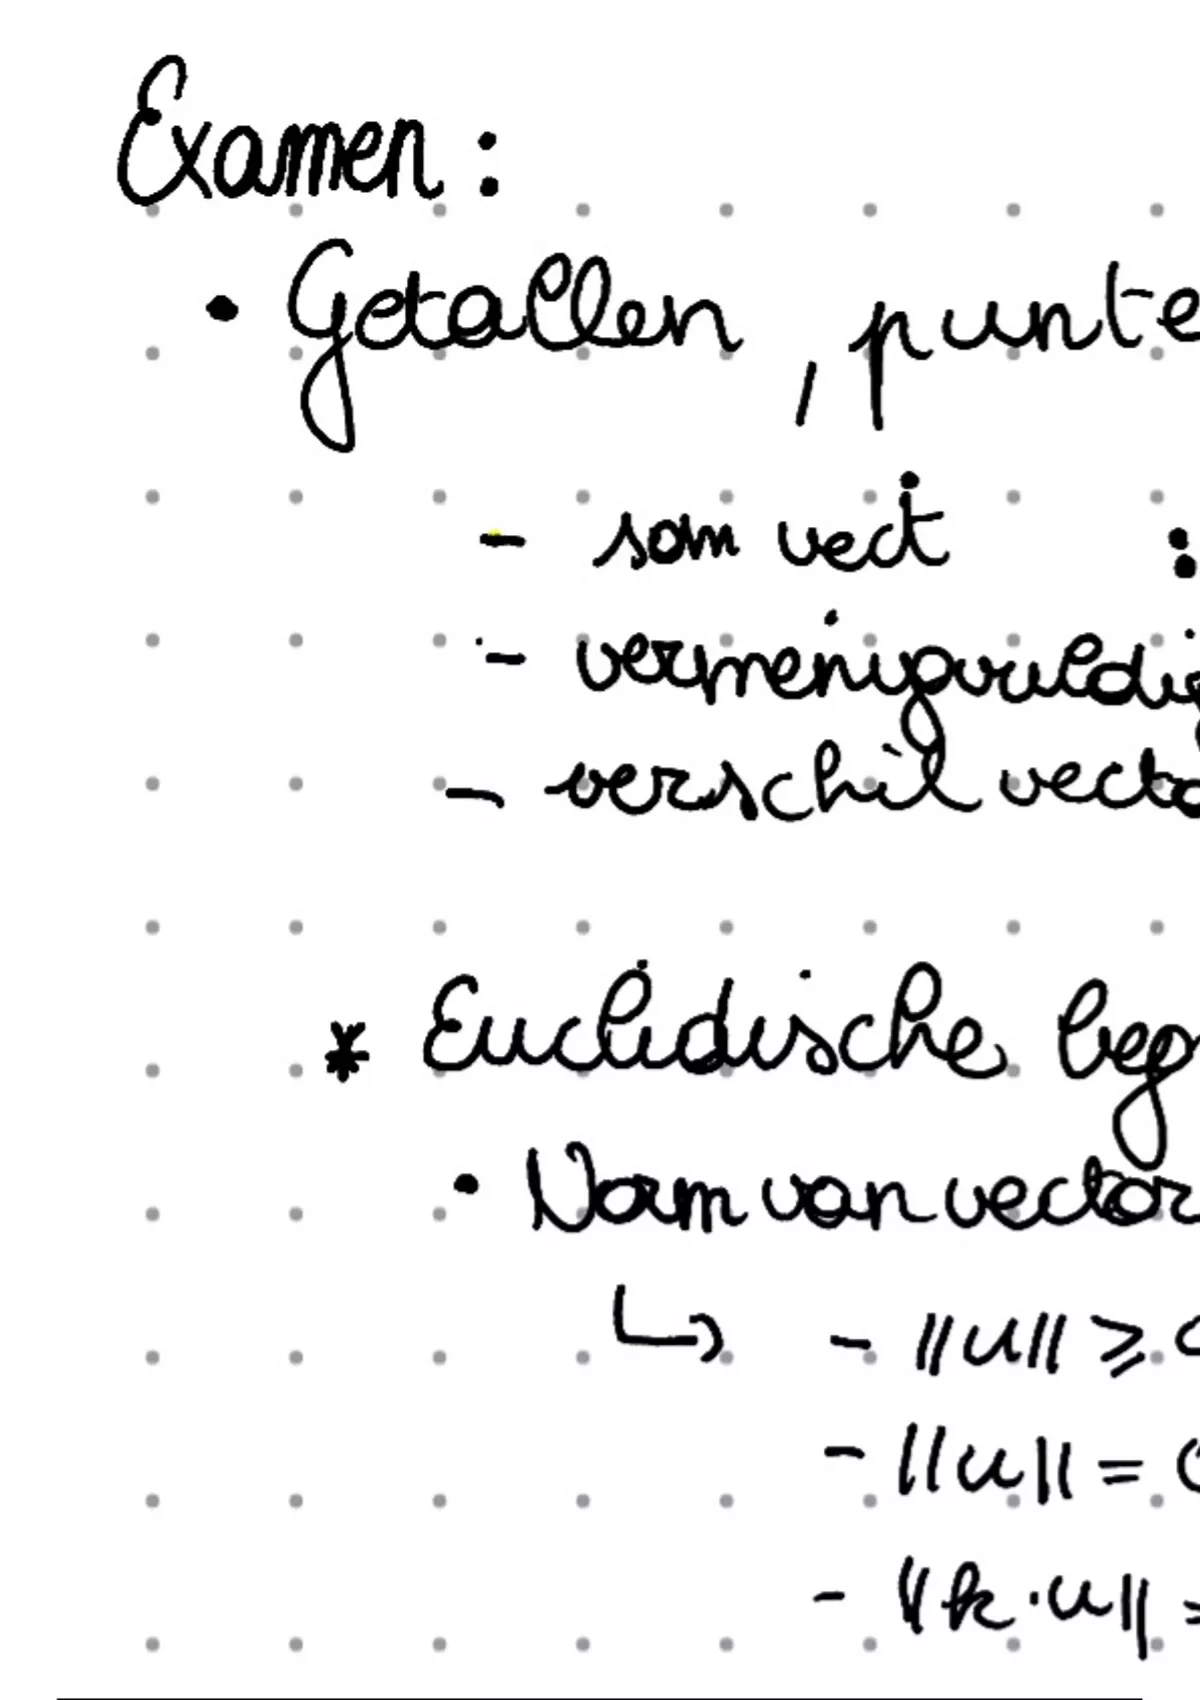 Examen :
• Getallen , punte
- som vect :
- vermenigvuldig
- verschil vecto
* Euclidische beg
• Norm van vector
↳ - ||u|| ⩾ 0
- ||u|| = 0
- ||k·u|| =